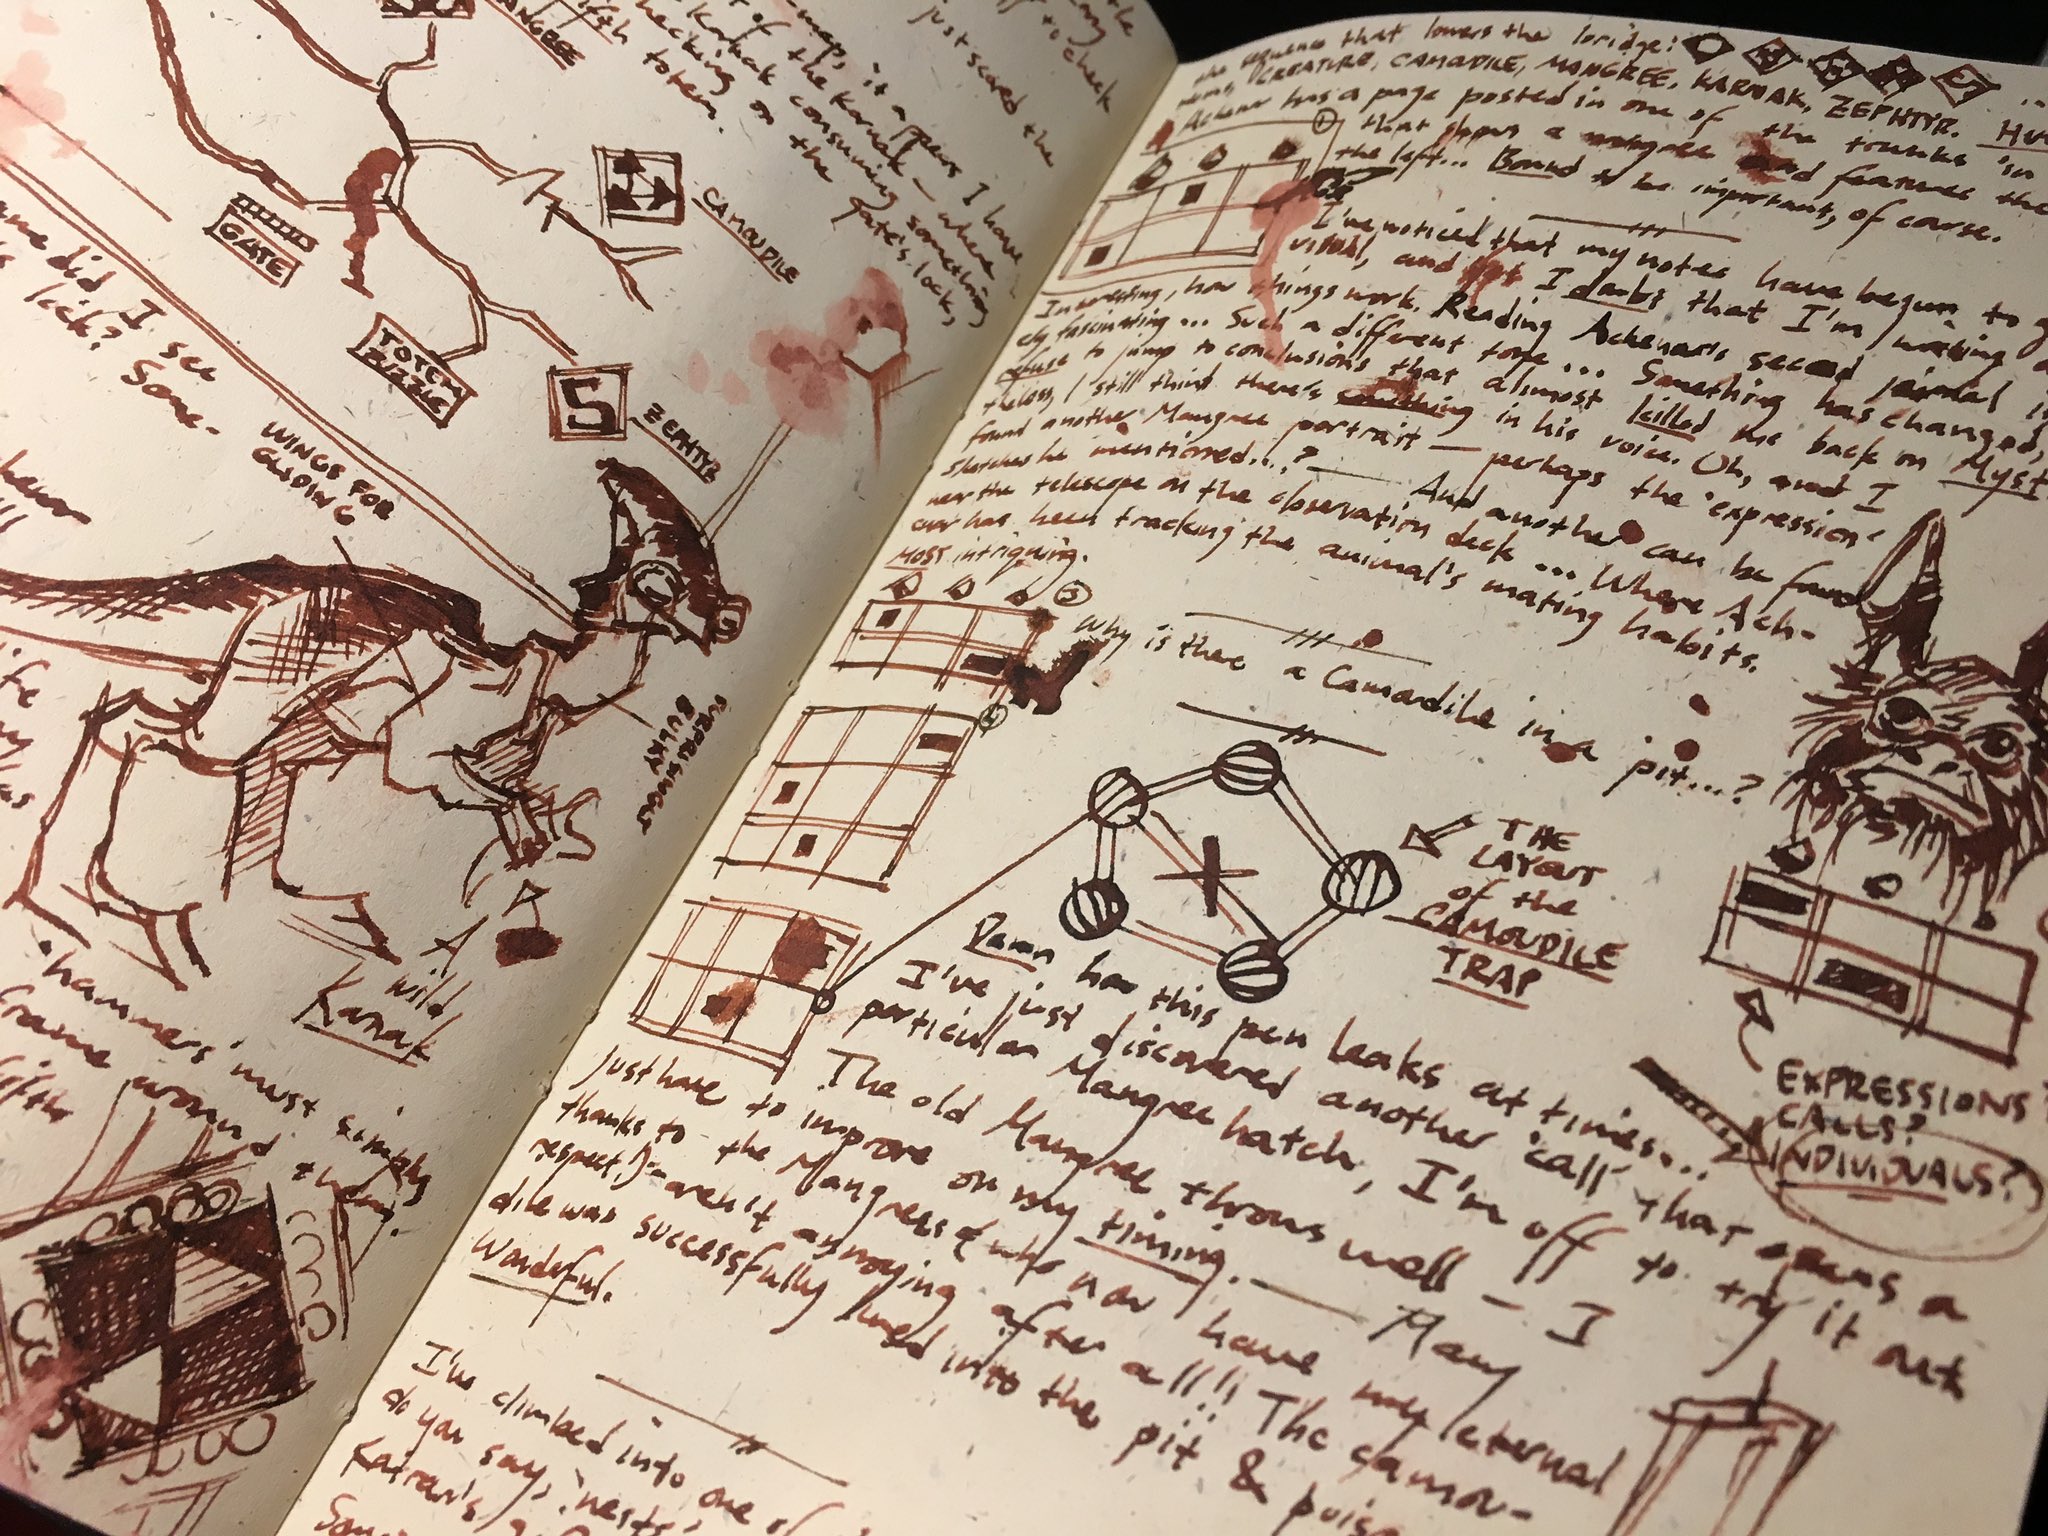 MANGREE
map, it appears I have
of the Karnak — where
Karnak consuming something
checking on the gate's lock,
fifth totem.
just scared the
to check
CAMOUDILE
GATE
TOTEM
PUZZLE
ZEPHYR
did I see
kick? Some-
WINGS FOR
GLIDING
SURPRISINGLY
BULKY
A
wild
Karnak
hammers must simply
around them.
the sequence that lowers the bridge:
CREATURE, CAMOUDILE, MANGREE, KARNAK, ZEPHYR.
Achenar has a page posted in one of the trunks in
that shows a mangree and features the
the left... Bound to be important, of course.
I've noticed that my notes have begun to
visual, and yet I doubt that I'm writing
Interesting, how things work. Reading Achenar's second journal is
fascinating... Such a different tone... Something has changed,
refuse to jump to conclusions that almost killed me back on Myst
I still think there's something in his voice. Oh, and I
found another Mangree portrait — perhaps the 'expression'
sketches he mentioned...? — And another can be found
near the telescope on the observation deck... Where Ach-
enar has been tracking the animal's mating habits.
Most intriguing.
Why is there a Camoudile in a pit...?
THE
LAYOUT
of the
CAMOUDILE
TRAP
Damn how this pen leaks at times...
I've just discovered another 'call' that opens a
particular Mangree hatch, I'm off to try it out
The old Mangree throws well — I
just have to improve on my timing. — Many
thanks to the Mangrees (who now have my eternal
respect.) — aren't annoying after all!! The camou-
dile was successfully lured into the pit &
Wonderful.
EXPRESSIONS?
CALLS?
INDIVIDUALS?
I've climbed into one of
do you say, 'nests',
Katran's